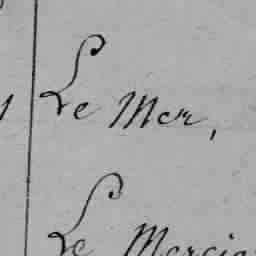 Le Mer,
Le Mercie